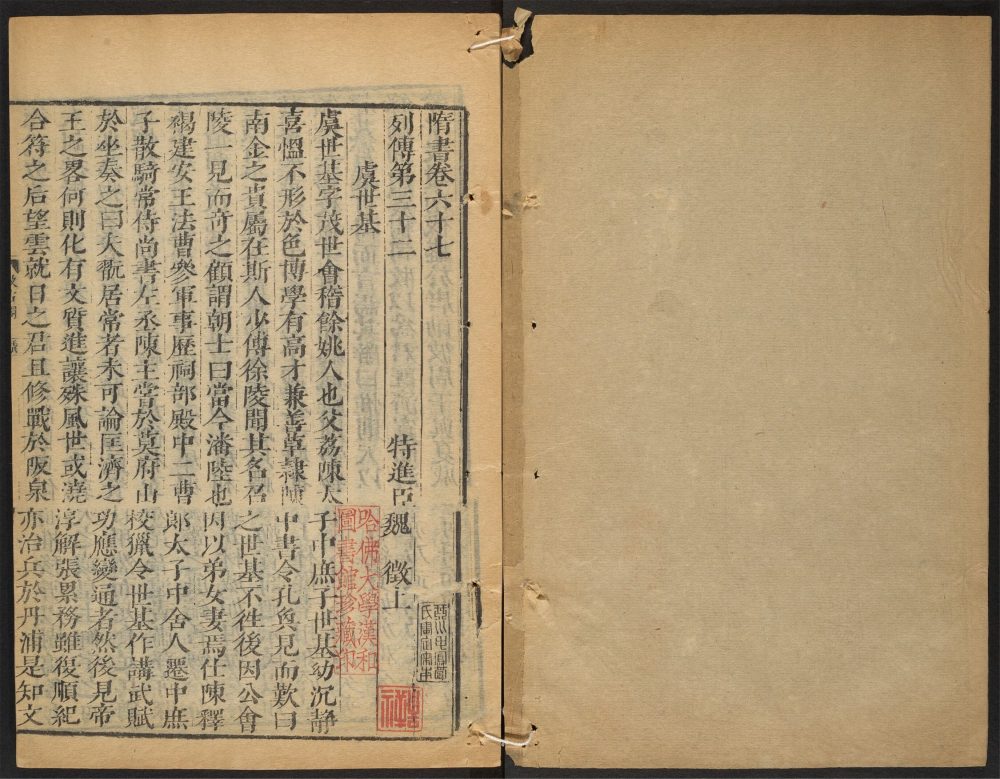 隋書卷六十七
列傳第三十二 特進臣魏 徵上
虞世基
虞世基字茂世會稽餘姚人也父荔陳太子中庶子世基幼沉靜
喜慍不形於色博學有高才兼善草隷陳中書令孔奐見而歎曰
南金之貴屬在斯人少傅徐陵聞其名召之世基不徃後因公會
陵一見而奇之顧謂朝士曰當今潘陸也因以弟女妻焉仕陳釋
褐建安王法曹參軍事歷祠部殿中二曹郎太子中舍人遷中庶
子散騎常侍尚書左丞陳主嘗於莫府山校獵令世基作講武賦
於坐奏之曰夫翫居常者未可論匡濟之功應變通者然後見帝
王之畧何則化有文質進讓殊風世或澆淳解張累務雖復順紀
合符之后望雲就日之君且修戰於阪泉亦治兵於丹浦是知文
哈佛大學漢和
圖書館珍藏印